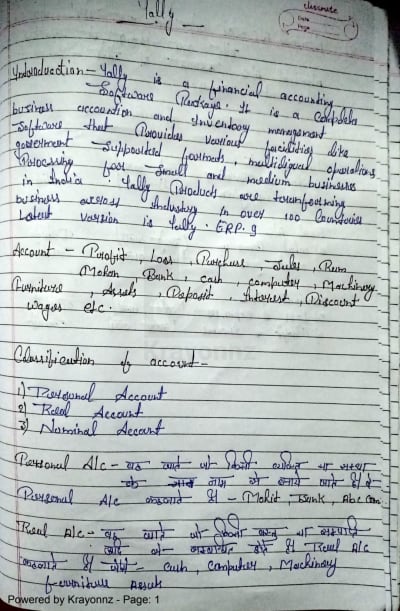 Tally
classmate
Date
Page
Introduction - Tally is a financial accounting
Software Package. It is a complete
business accountion and Inventory management
Software that Provides various facilities like
goverment Supported formats, multiligual oprations
Processing for Small and medium businesses
in India. Tally Products are teransforming
business across industry in over 100 Countries
Latest version is Tally. ERP. 9
Account - Profit, Loss, Purchase, Sales, Ram
Mohan Bank, cash, computer, Machinery,
Furniture, Assets, Deposit, Interest, Discount
wages etc.
Classification of account -
1) Personal Account
2) Real Account
3) Nominal Account
Personal A/c - वह खाते जो किसी व्यक्ति या संस्था
के नाम से बनाये जाते है वे
Personal A/c कहलाते है - Mohit, Bank, Abc Com
Real A/c - वह खाते जो किसी वस्तु या सम्पत्ति
से सम्बन्धित होते है Real A/c
कहलाते है जैसे - cash, computer, Machinery
furniture Assets
Powered by Krayonnz - Page: 1